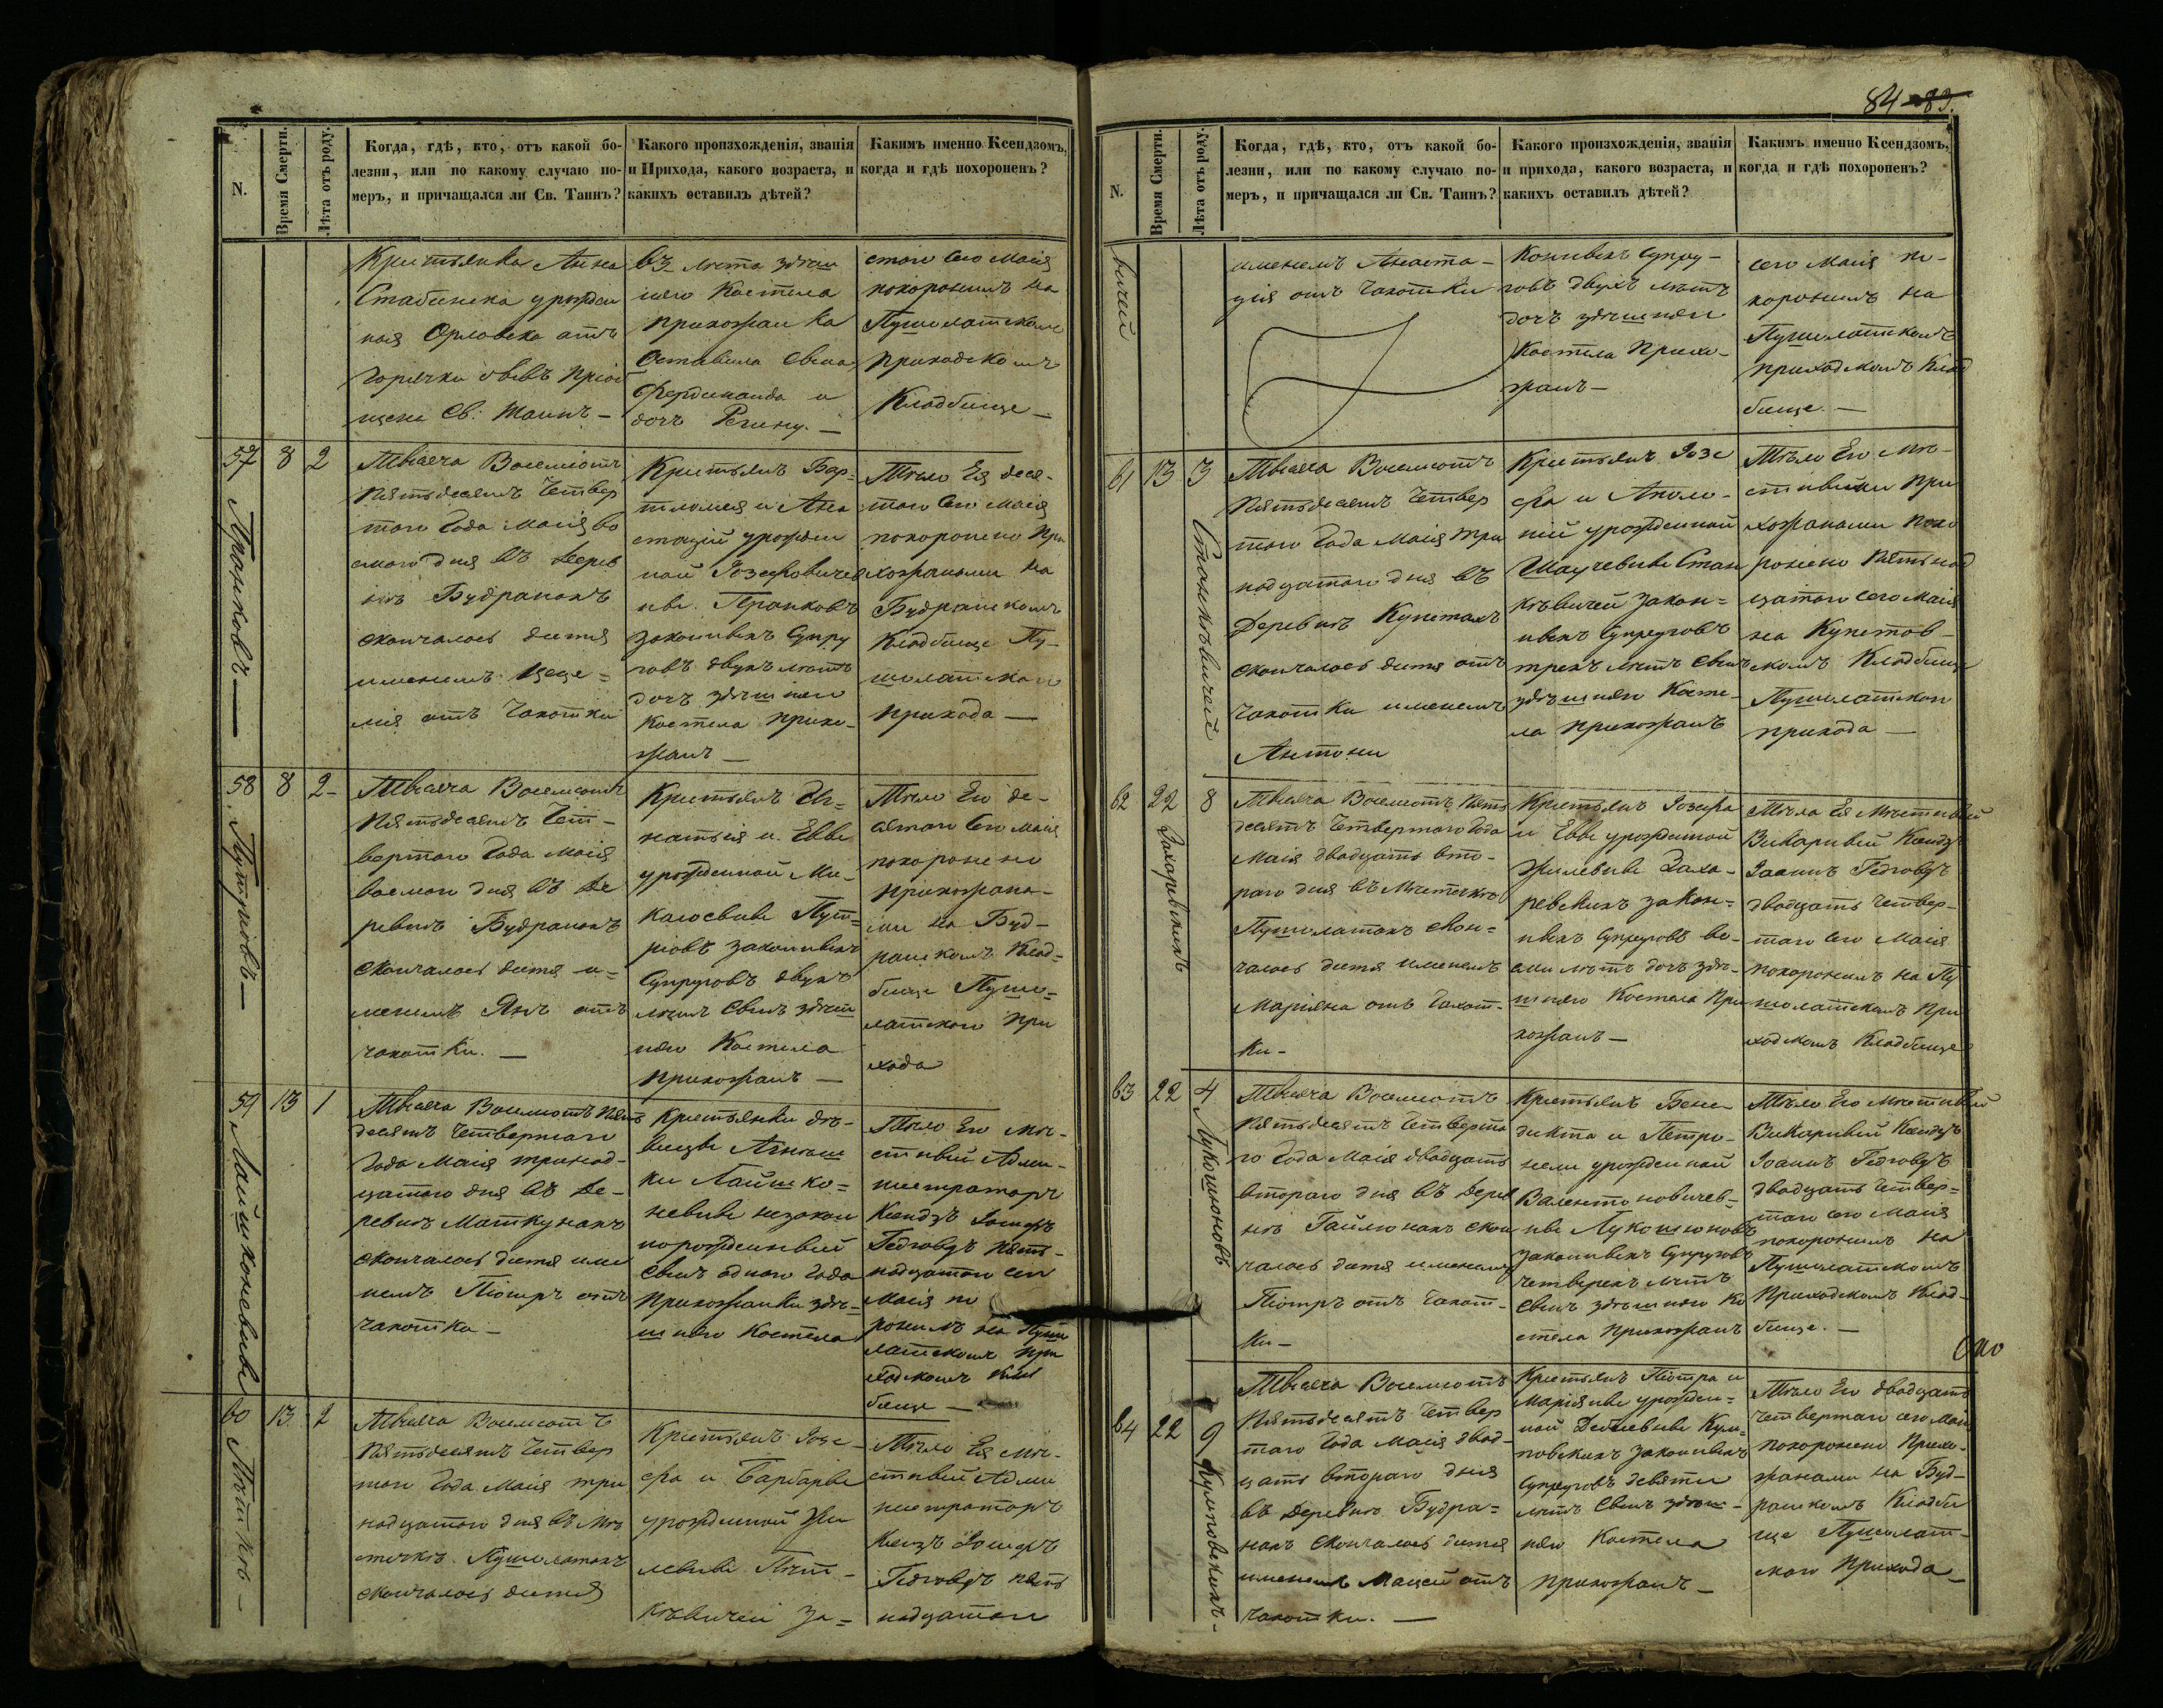 84 83.
N.
Время Смерти.
Лѣта отъ роду.
Когда, гдѣ, кто, отъ какой бо-
лезни, или по какому случаю по-
меръ, и причащался ли Св. Таинъ?
Какого произхожденія, званія
и Прихода, какого возраста, и
какихъ оставилъ дѣтей?
Какимъ именно Ксендзомъ,
когда и гдѣ похороненъ?
Крестьянка Анна
Стабинска урожден
ная Орловска отъ
горячки бывъ пріоб
щена Св: Таинъ –
въ лѣта здѣш
няго Костела
прихожанка
Оставила сына
Фердинанда и
дочъ Регину. –
стаго сего Маія
похоронилъ на
Пушолатскомъ
приходскомъ
Кладбище –
57
8
2
Пранковъ –
Тысяча Восемсотъ
Пятьдесятъ Четвер
таго Года Маія во
смаго дня въ Дерев
нѣ Будранахъ
скончалось дитя
именемъ Цеце=
лія отъ чахотки
Крестьянъ Бар=
тломея и Ана
стазіи урожден
ной Іозефовичев
ны. Пранковъ
законныхъ Супру
говъ двухъ лѣтъ
дочъ здѣшняго
Костела прихо-
жанъ –
Тѣло Ея деся-
таго Сего Маія
похоронено При
хожанами на
Будранскомъ
Кладбище Пу-
шолатскаго
прихода –
58
8
2-
Путриовъ –
Тысяча Восемсотъ
Пятьдесятъ Чет-
вертаго Года Маія
восмаго дня въ Де
ревнѣ Будранахъ
скончалось дитя и=
менемъ Янъ отъ
чахотки. –
Крестьянъ Иг=
натыя и Еввы
урожденной Ми-
Супруговъ двухъ
лѣтъ Сынъ здѣш
няго Костела
прихожанъ –
Тѣло Его де-
сятаго Сего Маія
похоронено
прихожана-
ми на Буд-
ранскомъ Клад-
бище Пушо=
латскаго При
хода
59
13
1
Лайшконевны
Тысяча Восемсотъ Пять
десятъ Четвертаго
Года Маія тринад-
цатаго дня въ Де-
ревнѣ Маткунахъ
скончалось дитя име
немъ Піотръ отъ
чахотки –
Крестьянки дѣ-
вицы Агнеш
ки Лайшко=
невны незакон
порожденный
Сынъ одного Года
Прихожанки здѣ-
шняго Костела
Тѣло Его мѣ-
стный Адми-
нистраторъ
Ксендзъ Іосифъ
Гедговдъ пят-
надцатаго сего
Маія по
ронилъ на Пушо
латскомъ при
ходскомъ Клад
бище –
60
13
2
Тысяча Восемсотъ
Пятьдесятъ Четвер
таго Года Маія три
надцатаго дня въ Мѣ
стечкѣ Пушолатахъ
скончалось дитя
Крестьянъ Іозе-
фа и Барбары
урожденной Жи
левны
кѣвичей За=
Тѣло Ея мѣ-
стный Адми
нистраторъ
Ксендзъ Іосифъ
Гедговдъ пят
надцатаго
N.
Время Смерти.
Лѣта отъ роду.
Когда, гдѣ, кто, отъ какой бо-
лезни, или по какому случаю по-
меръ, и причащался ли Св. Таинъ?
Какого произхожденія, званія
и прихода, какого возраста, и
какихъ оставилъ дѣтей?
Какимъ именно Ксендзомъ,
когда и гдѣ похороненъ?
вичей
именемъ Анаста-
зія отъ Чахотки
конныхъ Супру-
говъ двухъ лѣтъ
дочъ здѣшняго
Костела Прихо-
жанъ –
сего Маія по-
хоронилъ на
Пушолатскомъ
приходскомъ Клад
бище. –
61
13
3
Станкѣвичей
Тысяча Восемсотъ
Пятьдесятъ Четвер
таго Года Маія три
надцатаго дня въ
Деревнѣ Купетахъ
скончалось дитя отъ
чахотки именемъ
Антони
Крестьянъ Іозе
фа и Аполо-
ніи урожденной
Шаучевны Стан
кѣвичей закон=
ныхъ Супруговъ
трехъ лѣтъ Сынъ
здѣшняго Косте-
ла прихожанъ
Тѣло Его мѣ-
стными При
хожанами похо
ронено Пятьнад
цатаго сего Маія
на Купетов-
скомъ Кладбище
Пушолатскаго
прихода –
62
22
8
Захаревскихъ
Тысяча Восемсотъ Пять
десятъ Четвертаго Года
Маія двадцать вто-
раго дня въ Мѣстечкѣ
Пушолатахъ скон=
чалось дитя именемъ
Маріяна отъ Чахот-
ки –
Крестьянъ Іозефа
и Еввы урожденной
Жилевны Заха-
ревскихъ закон-
ныхъ Супруговъ во-
сми лѣтъ дочъ здѣ-
шняго Костела При
хожанъ –
Тѣла Ея Мѣстный
Викарный Ксендзъ
Іоаннъ Гедговдъ
двадцать четвер-
таго Сего Маія
похоронилъ на Пу
шолатскомъ При
ходскомъ Кладбище
63
22
4
Лукошюновъ
Тысяча Восемсотъ
Пятьдесятъ Четверта
го Года Маія двадцать
втораго дня въ Дерев
нѣ Гайлюнахъ скон
чалось дитя именемъ
Піотръ отъ Чахот-
ки –
Крестьянъ Бене
дикта и Петро-
нели урожденной
Валентоновичев-
ны Лукошюновъ
законныхъ Супруговъ
четверехъ лѣтъ
Сынъ здѣшняго Ко
стела прихожанъ
Тѣло Его Мѣстный
Викарный Ксендзъ
Іоаннъ Гедговдъ
двадцать четвер=
таго сего Маія
похоронилъ на
Пушолатскомъ
Приходскомъ Клад-
бище. –
64
22
9
Кулповскихъ –
Тысяча Восемсотъ
Пятьдесятъ Четвер
таго Года Маія двад-
цать втораго дня
въ Деревнѣ Будра=
нахъ скончалось дитя
именемъ Мацей отъ
чахотки. –
Крестьянъ Піотра и
Маріянны урожден-
ной
законныхъ
Супруговъ девяти
лѣтъ Сынъ здѣш-
няго Костела
прихожанъ –
Тѣло Его двадцать
четвертаго сего Маія
похоронено Прихо-
жанами на Буд-
ранскомъ Кладби
ще Пушолат-
скаго Прихода –